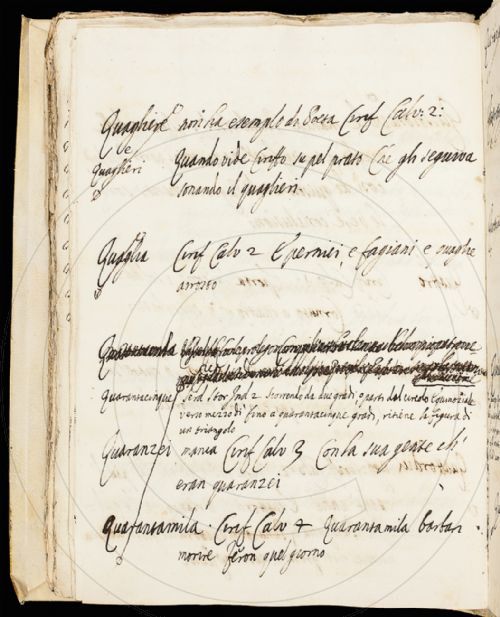 Quaghere non ha esempio di Poeta Ciref Calv: 2:
e
Quaglieri Quando vide Cireffo su pel prato Che gli seguiva
sonando il quaglieri.
Quaglia Ciref Calv 2 E pernici, e fagiani e quaglie
arrosto
Quarantamila
Quarantacinque Serd. Stor Ind 2 scorrendo da due gradi, o parti dal circolo Equinoziale
verso mezzo dì fino a quarantacinque gradi, ritiene la figura di
un triangolo
Quaranzei manca Ciref Calv 3 Con la sua gente ch'
eran quaranzei
Quarantamila. Ciref Calv 4 Quarantamila barbari
morire feron quel giorno